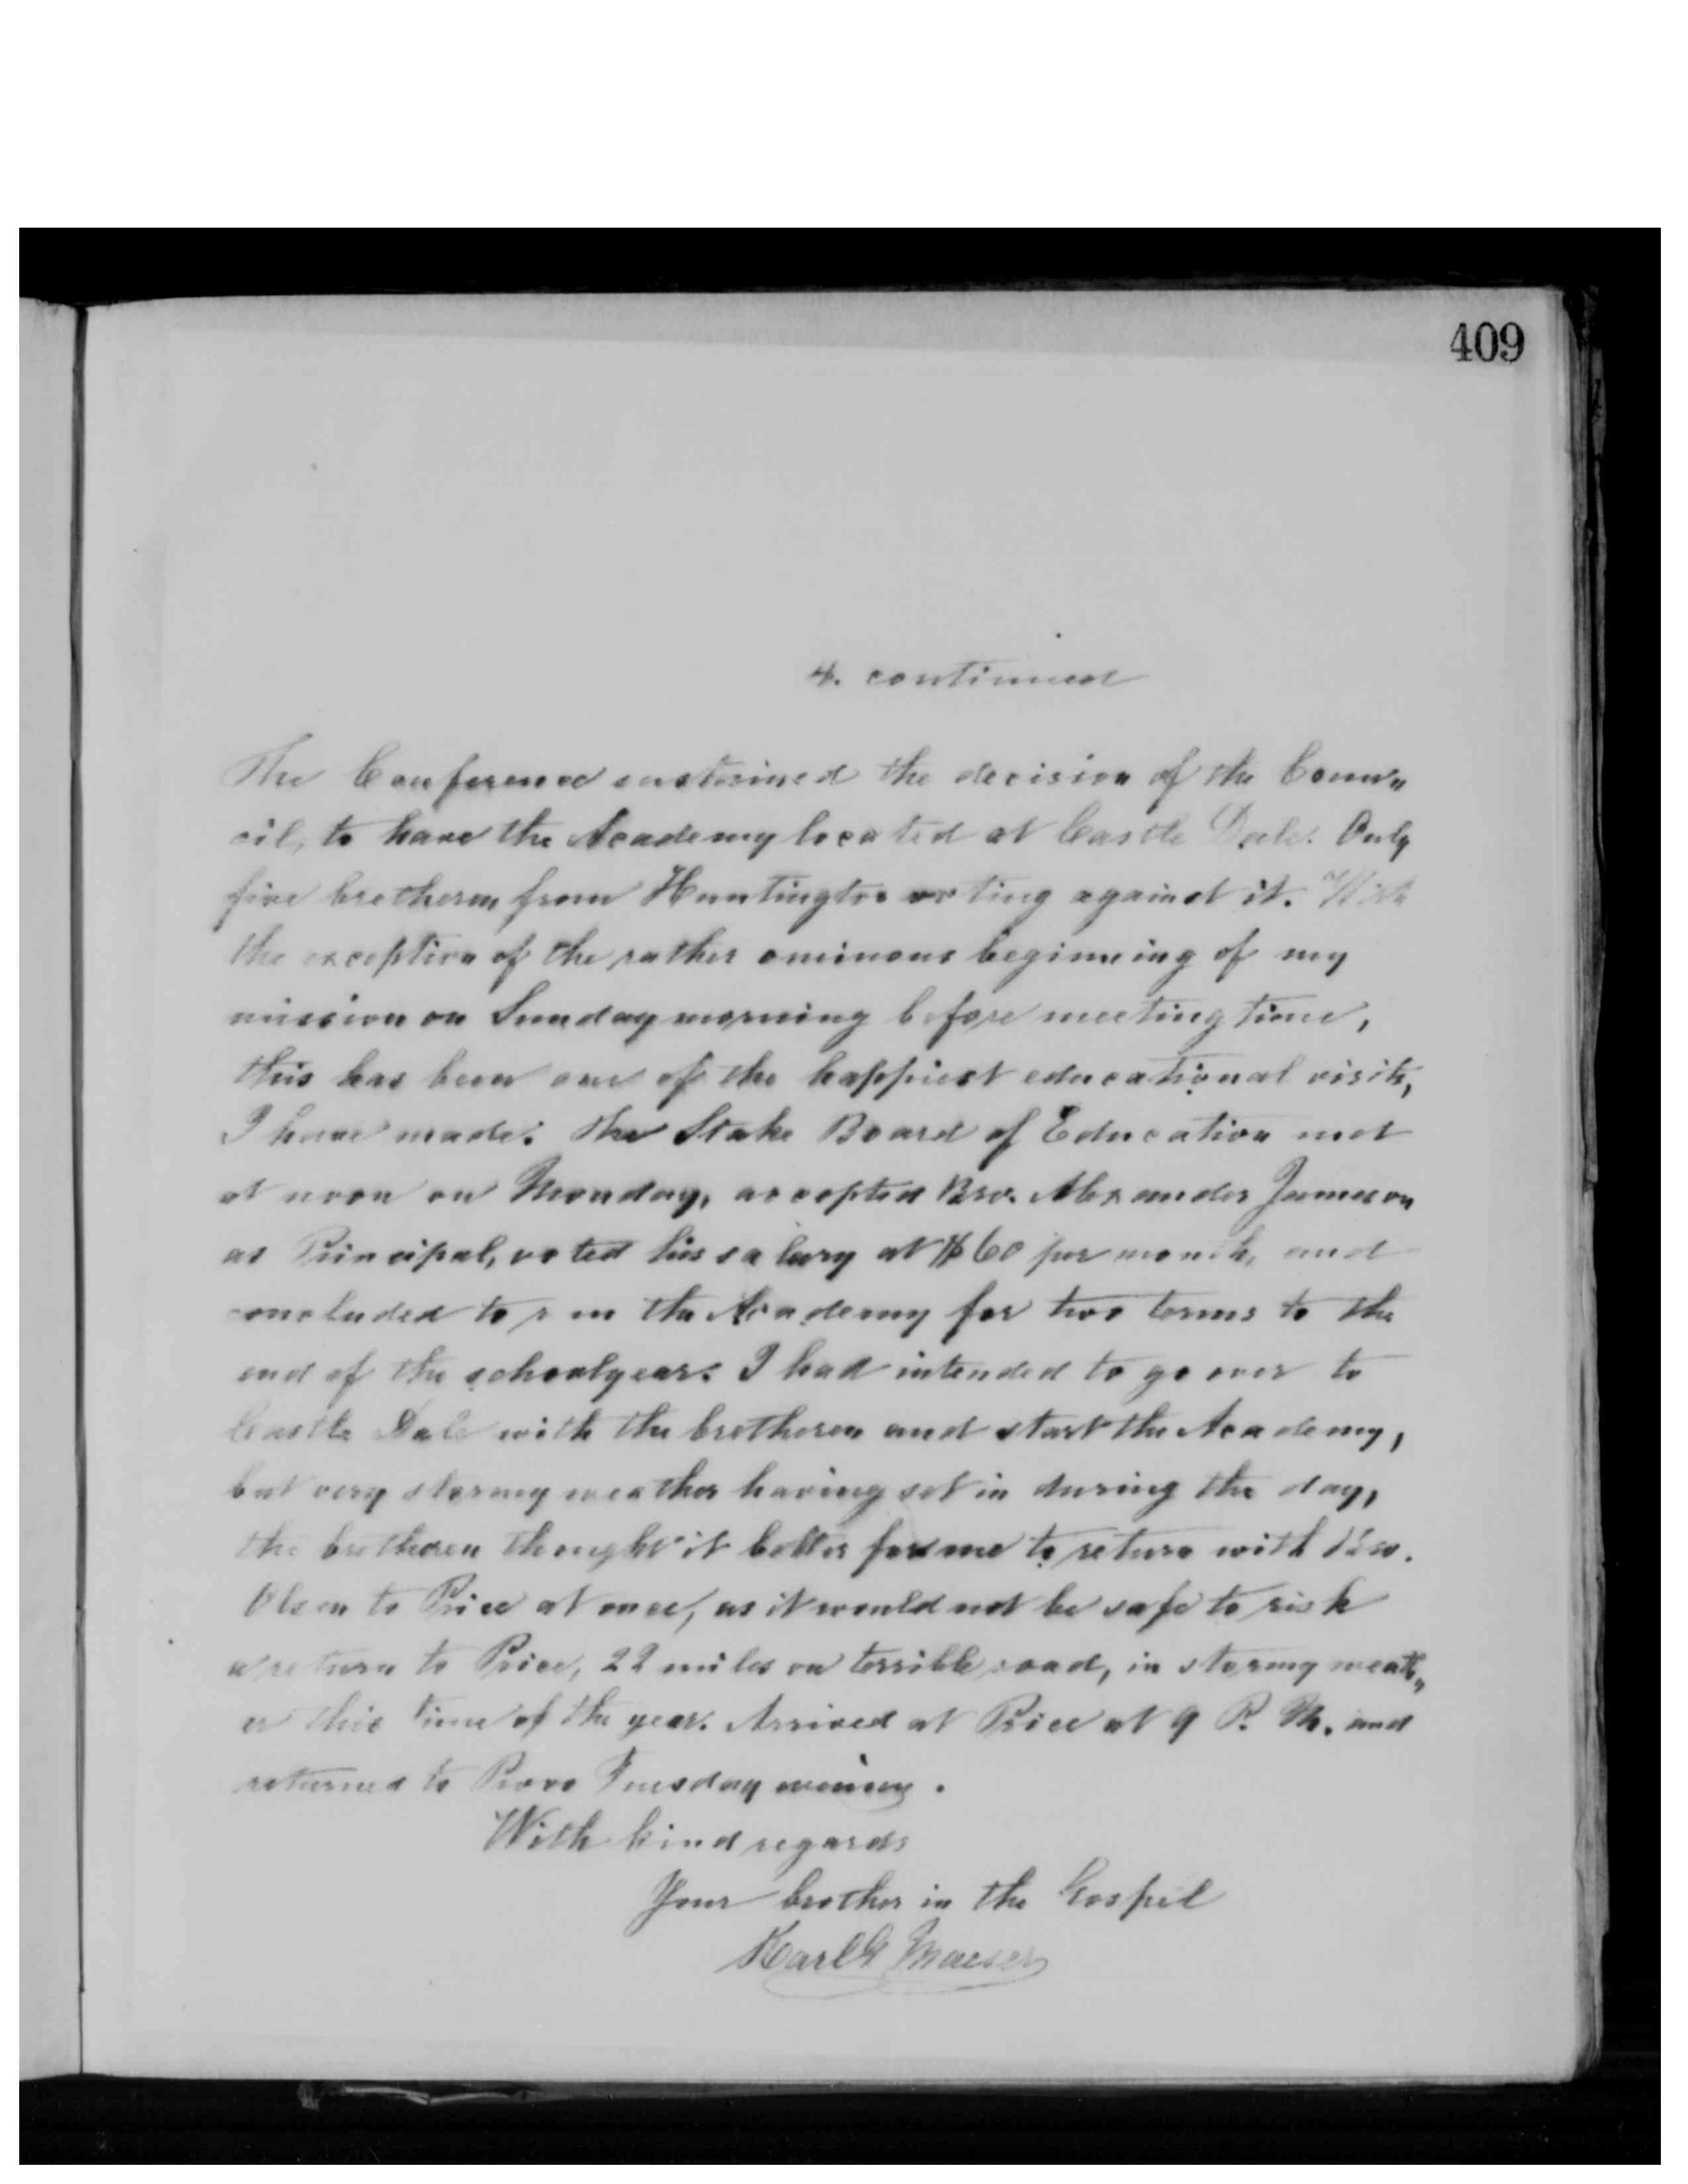 409
4. continued
The Conference sustained the decision of the Coun„
cil, to have the Academy located at Castle Dale. Only
five bretheren from Huntington voting against it. With
the exception of the rather ominous beginning of my
mission on Sunday morning before meeting time,
this has been one of the happiest educational visits,
I have made. The Stake Board of Education met
at noon on Monday, accepted Bro. Alexander Jameson
as Principal, voted his salary at $60 per month, and
concluded to run the Academy for two terms to the
end of the schoolyear. I had intended to go over to
Castle Dale with the bretheren and start the Academy,
but very stormy weather having set in during the day,
the bretheren thought it better for me to return with Bro.
Olsen to Price at once, as it would not be safe to risk
a return to Price, 22 miles on terrible road, in stormy weath„
er this time of the year. Arrived at Price at 9 P. M. and
returned to Provo Tuesday evening.
With kind regards
Your brother in the Gospel
Karl G Maeser